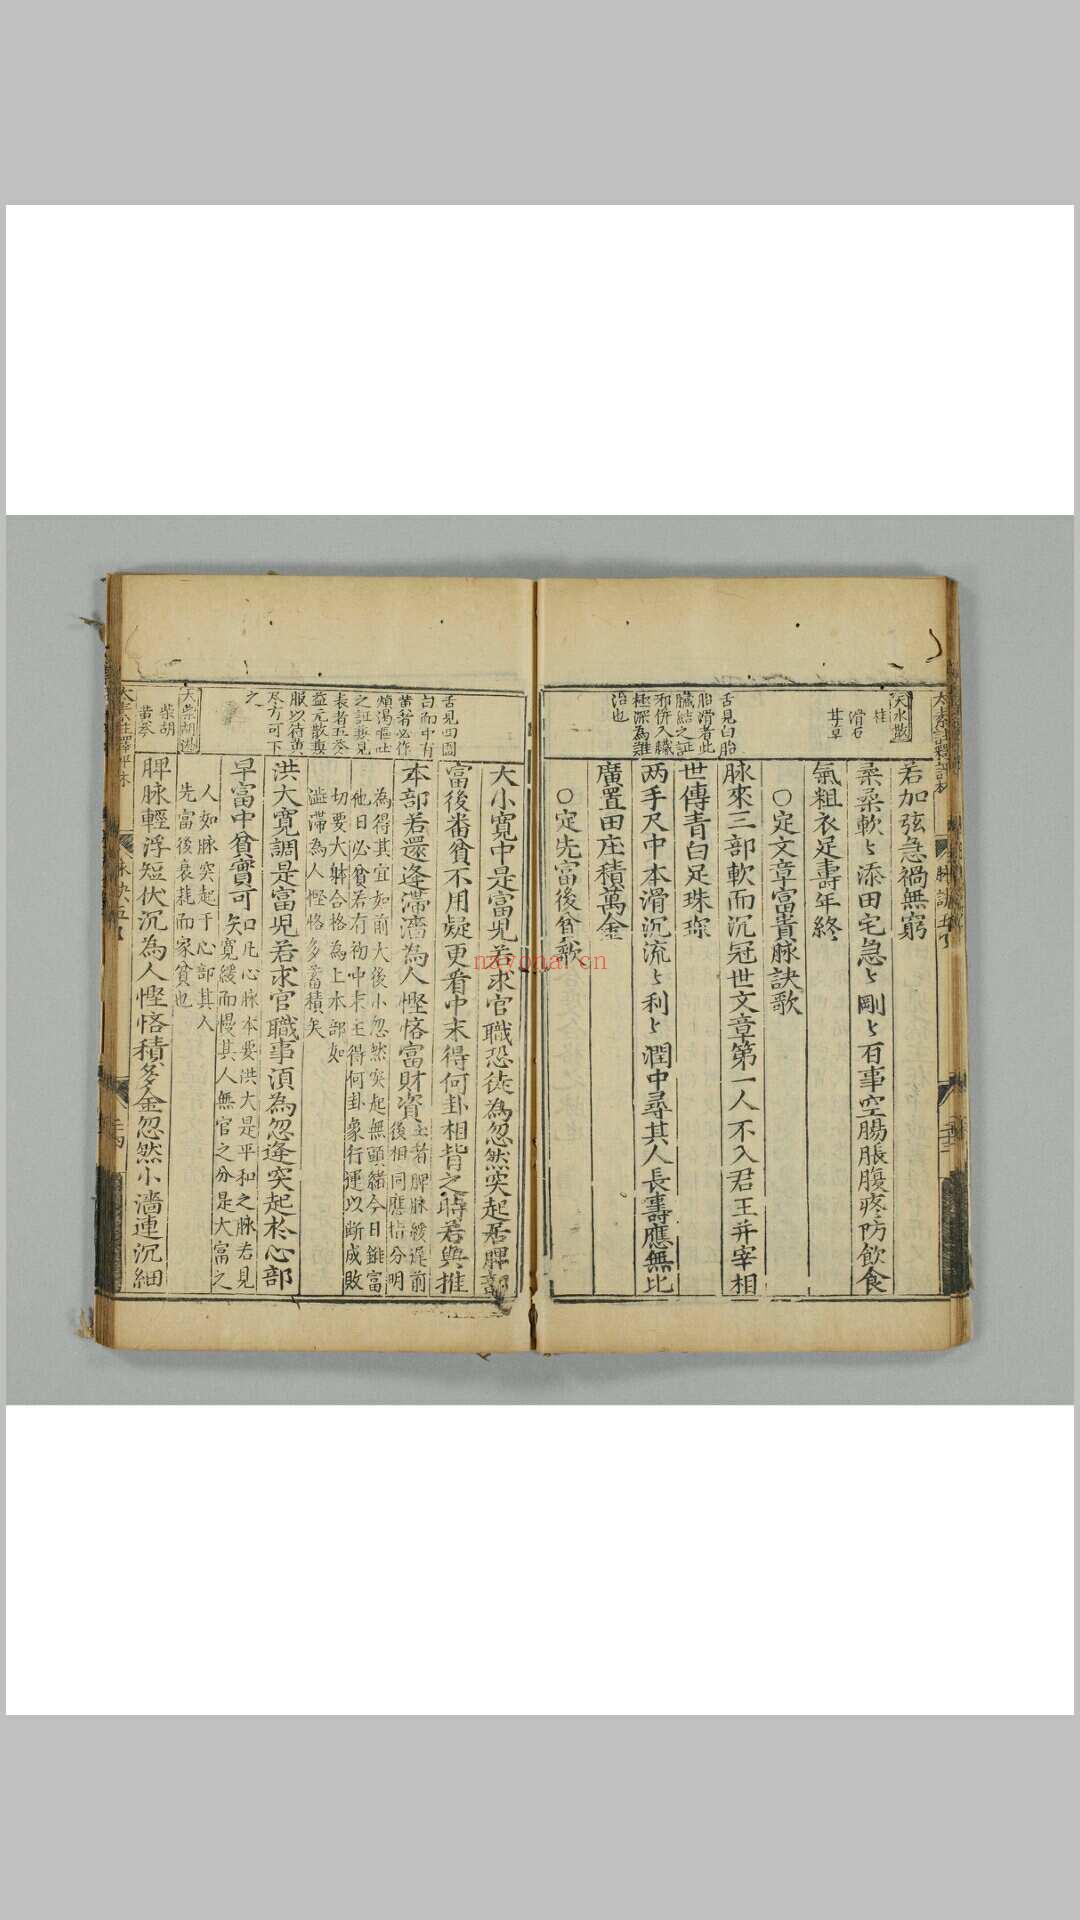 天水散
桂
滑石
甘草
舌見白胎
胎滑者此
臟結之証
邪併入臟
極深為難
治也
若加弦急禍無窮
柔柔軟〻添田宅急〻剛〻百事空腸脹腹疼防飲食
氣粗衣足壽年終
○定文章富貴脉訣歌
脉來三部軟而沉冠世文章第一人不入君王并宰相
世傳青白足珠琛
两手尺中本滑沉流〻利〻潤中尋其人長壽應無比
廣置田庄積萬金
○定先富後貧歌
舌見四圍
白而中有
黃者必作
煩渴嘔吐
之証兼見
表者五苓
益元散兼
服以待黃
尽方可下
之
大柴胡湯
柴胡
黃芩
大小寬中是富児若求官職恐徒為忽然突起居脾部
富後番貧不用疑更看中末得何卦相背之時若與推
本部若還逢滯濇為人慳悋富財資
主者脾脉緩遲前
後相同應指分明
為得其宜如前大後小忽然突起無頭緒今日雖富
他日必貧若有初中末主得何卦象行運以断成敗
切要大躰合格為上本部如
濇滯為人慳悋多蓄積矣
洪大寬調是富児若求官職事須為忽逢突起於心部
早富中貧實可矣
曰凡心脉本要洪大是平和之脉若見
寬緩而慢其人無官之分是大富之
人如脉突起于心部其人
先富後衰耗而家貧也
脾脉輕浮短伏沉為人慳悋積多金忽然小濇連沉細
太素註釋評林
脉訣五
二十四
nayona.cn